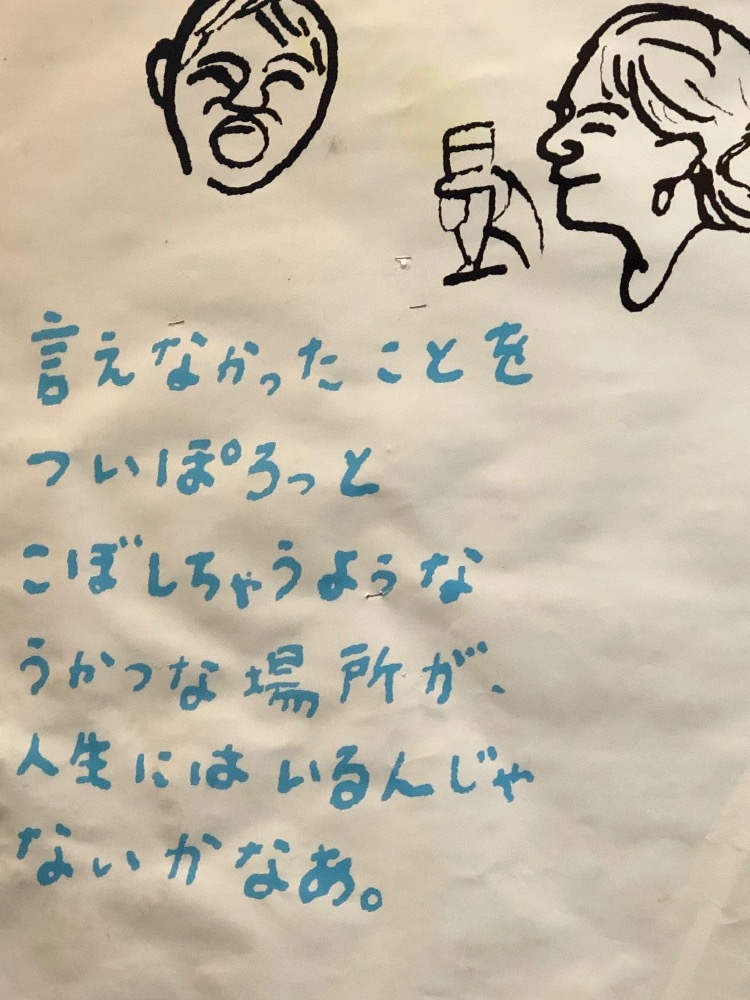 言えなかったことを
ついぽろっと
こぼしちゃうような
うかつな場所が、
人生にはいるんじゃ
ないかなあ。